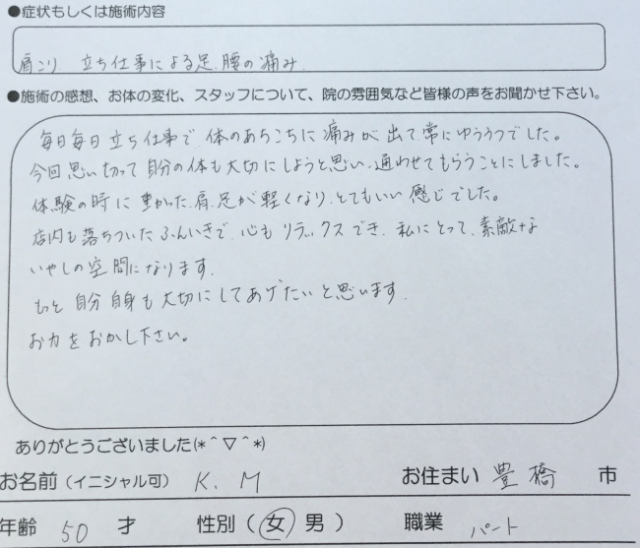 ●症状もしくは施術内容
肩こり 立ち仕事による足、腰の痛み
●施術の感想、お体の変化、スタッフについて、院の雰囲気など皆様の声をお聞かせ下さい。
毎日毎日立ち仕事で、体のあちこちに痛みが出て、常にゆううつでした。
今回思い切って自分の体も大切にしようと思い、通わせてもらうことにしました。
体験の時に重かった肩、足が軽くなり、とてもいい感じでした。
店内も落ちついたふんいきで、心もリラックスでき、私にとって、素敵な
いやしの空間になります。
もっと自分自身も大切にしてあげたいと思います。
お力をおかし下さい。
ありがとうございました(*^▽^*)
お名前(イニシャル可) K.M お住まい 豊橋 市
年齢 50 才 性別(女 男) 職業 パート